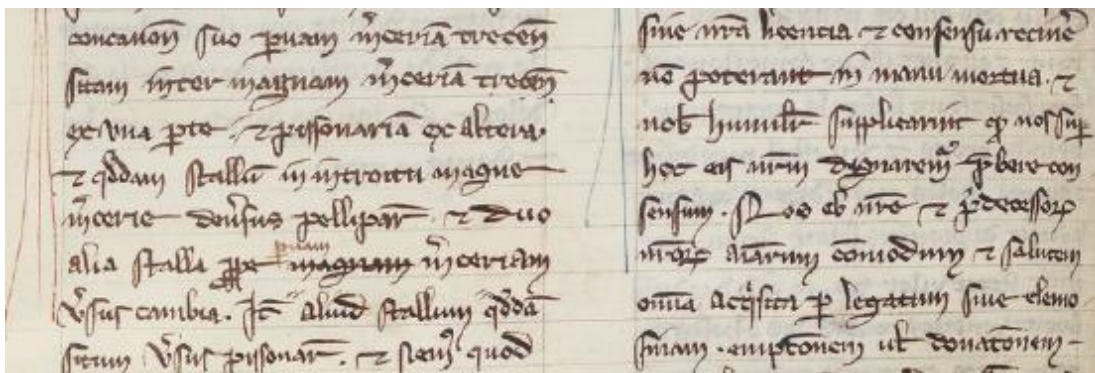 concanoñ suo ꝑuam m̃ceriã trecen̄
sitam inter magnam m̃ceriã trecen̄
ex vna ꝑte . ⁊ pissonariã ex altera.
⁊ qddam stallū in introitu magne
m̃cerie deũsus pellipar̄ . ⁊ duo
alia stalla ꝓpe ꝑuam magnam m̃ceriam
ṽsus cambia . Itē aliud stallum qddã
situm ṽsus pissonar̄ . ⁊ siem̃ quod
sine nr̃a licencia ⁊ consensu retine᷑
nō poterant in manu mortua . ⁊
nob̄ humilit̃ supplicarint qꝫ nos suꝑ
hoc eis nr̃m dignarem᷑ p̃bere con
sensum . Nos ob nr̃e ⁊ p̃decessoꝝ
nr̃oꝝ aĩarum cōmodum ⁊ salutem
omnia acq̃sita ꝑ legatum siue elemo
sinam . emptōnem ul̄ donatōnem